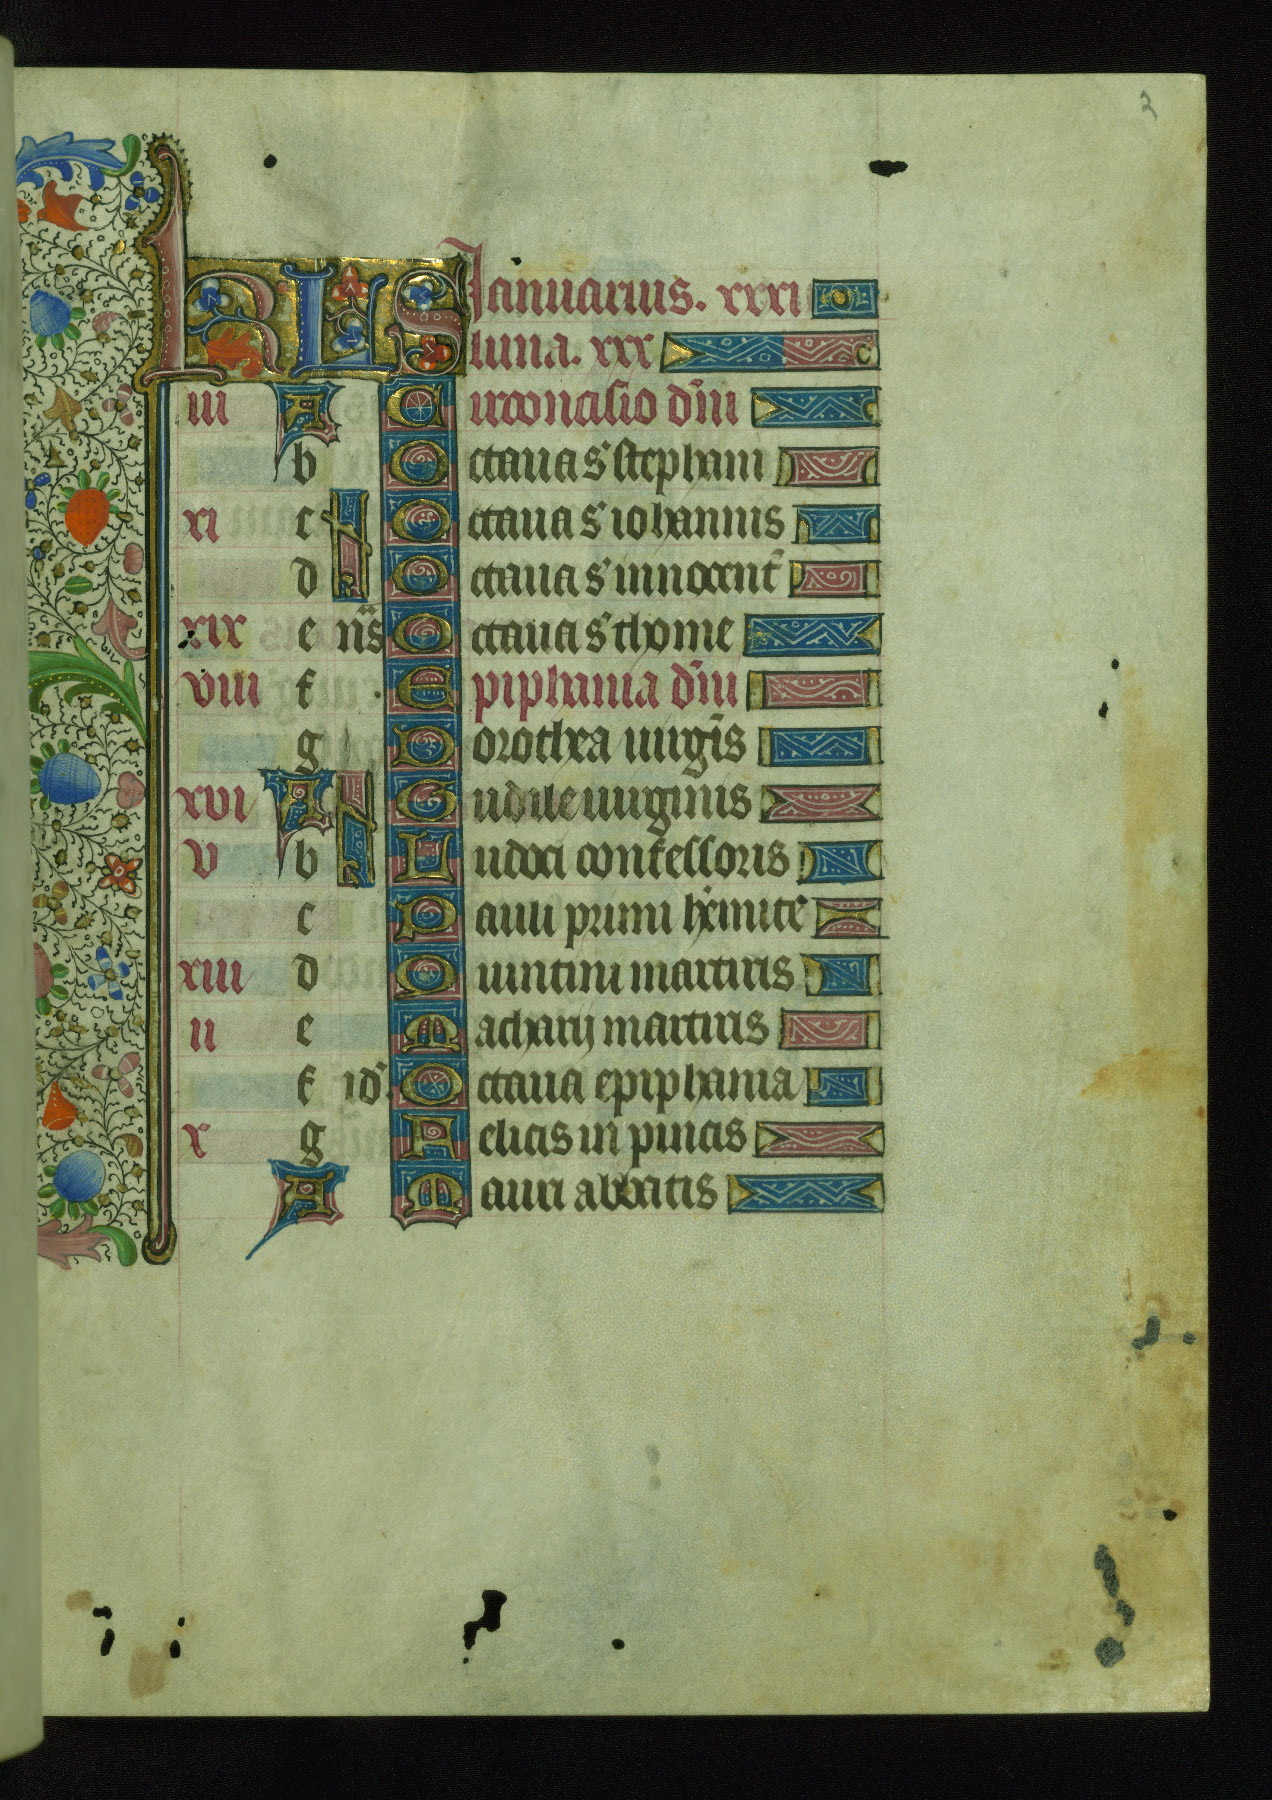 2
KLS Januarius. xxxi
luna. xxx
iii A Circoncisio dñi
b Octaua s' stephani
xi c N Octaua s' iohannis
d Octaua s' innocent̄
xix e nōs Octaua s' thome
viii f Epiphania dñi
g Dorothea uirgis̄
xvi A N Gudile uirginis
v b Iudoci confessoris
c Pauli primi h'emite
xiii d Quintini martiris
ii e Macharij martiris
f id'. Octaua epiphania
x g Felicis in pincis
A Mauri abbatis